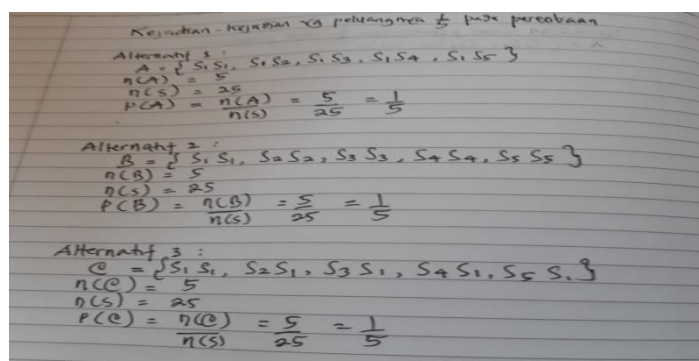 Kejadian-kejadian yg peluangnya 1/5 pada percobaan
Alternatif 1 :
A = { S1 S1, S1 S2, S1 S3, S1 S4, S1 S5 }
n(A) = 5
n(S) = 25
P(A) = n(A)/n(S) = 5/25 = 1/5
Alternatif 2 :
B = { S1 S1, S2 S2, S3 S3, S4 S4, S5 S5 }
n(B) = 5
n(S) = 25
P(B) = n(B)/n(S) = 5/25 = 1/5
Alternatif 3 :
C = { S1 S1, S2 S1, S3 S1, S4 S1, S5 S1 }
n(C) = 5
n(S) = 25
P(C) = n(C)/n(S) = 5/25 = 1/5